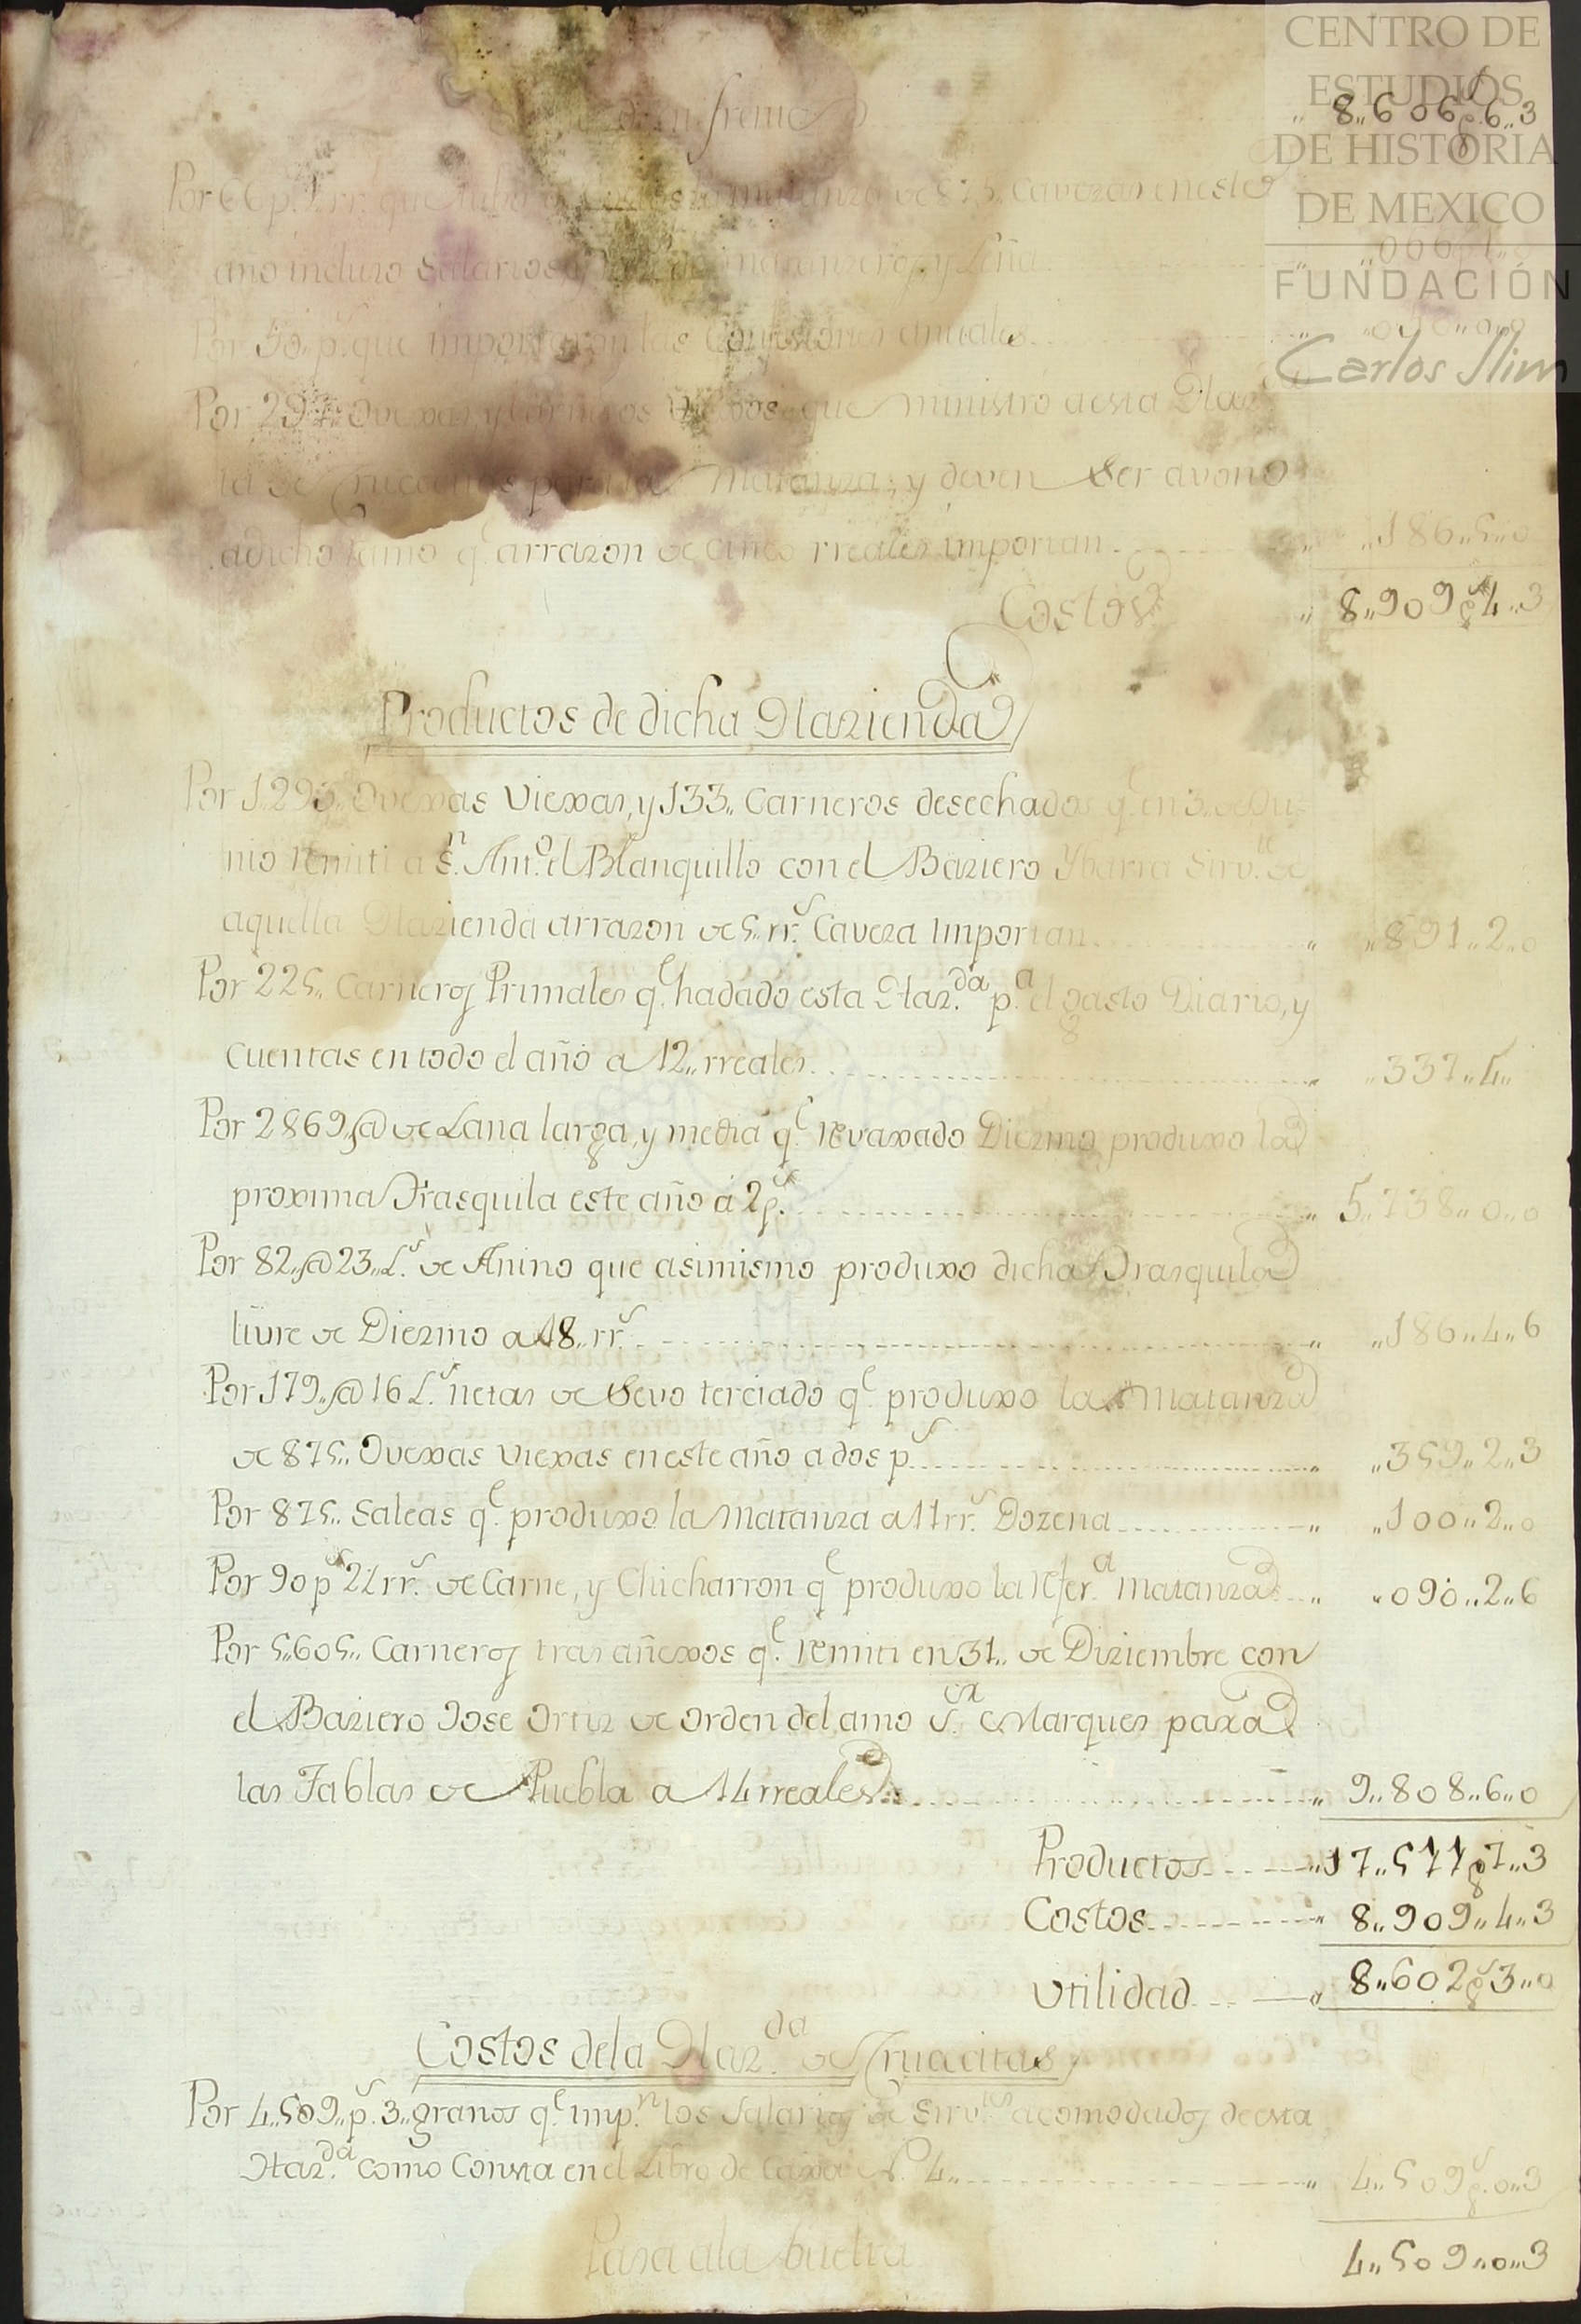 CENTRO DE
ESTUDIOS
DE HISTORIA
DE MEXICO
FUNDACIÓN
Carlos Slim
frente 8,,606 ps. 6,,3
Por 66 p. 1 rr. que matanza de 875,, Cavezas en este
año incluso Salarios matanzeros, y Leña ,,066,,1,,0
Por 50,, ps. que importaron las Confesiones anuales ,,050,,0,,0
Por 297,, Ovexas, y Carneros Viexos que ministró a esta Haz.da
la de Cruecitas para la Matanza, y deven Ser avono
a dicho Ramo q.e arrazon de cinco rreales importan ,,186,,5,,0
Costos ,, 8,,909 ps. 4,,3
Productos de dicha Hazienda
Por 1293,, Ovexas Viexas, y 133,, Carneros desechados q.e en 3,, de Ju-
nio remiti a S.n Ant.o el Blanquillo con el Baziero Ybarra Sirv.te de
aquella Hazienda arrazon de 5,, rr.s Caveza Importan ,,891,,2,,0
Por 225,, Carneros Primales q.e ha dado esta Haz.da p.a el gasto Diario, y
Cuentas en todo el año a 12,, rreales ,,337,,4,,
Por 2869,, @ de Lana larga, y media q.e revaxado Diezmo produxo la
proxima Trasquila este año á 2 ps. 5,,738,,0,,0
Por 82,, @ 23,, L.s de Anino que asimismo produxo dicha Trasquila
livre de Diezmo a 18,, rr.s ,,186,,4,,6
Por 179,, @ 16 L.s netas de Sevo terciado q.e produxo la Matanza
de 875,, Ovexas Viexas en este año a dos p.s ,,359,,2,,3
Por 875,, Saleas q.e produxo la Matanza a 11 rr.s Dozena ,,100,,2,,0
Por 90 p.s 2½ rr.s de Carne, y Chicharron q.e produxo la refer.a matanza ,,090,,2,,6
Por 5,,605,, Carneros tras añexos q.e remiti en 31,, de Diziembre con
el Baziero Jose Ortiz de orden del amo S.or Marques para
las Tablas de Puebla a 14 rreales 9,,808,,6,,0
Productos ,,17,,511 ps. 7,,3
Costos 8,,909,,4,,3
Utilidad 8,,602 ps. 3,,0
Costos de la Haz.da de Cruacitas
Por 4,,509,, p.s 3,, granos q.e imp.n los Salarios de Sirv.tes acomodados de esta
Haz.da como Consta en el Libro de Caxa N.o 4,, 4,,509 ps. 0,,3
Pasa ala buelta 4,,509,,0,,3